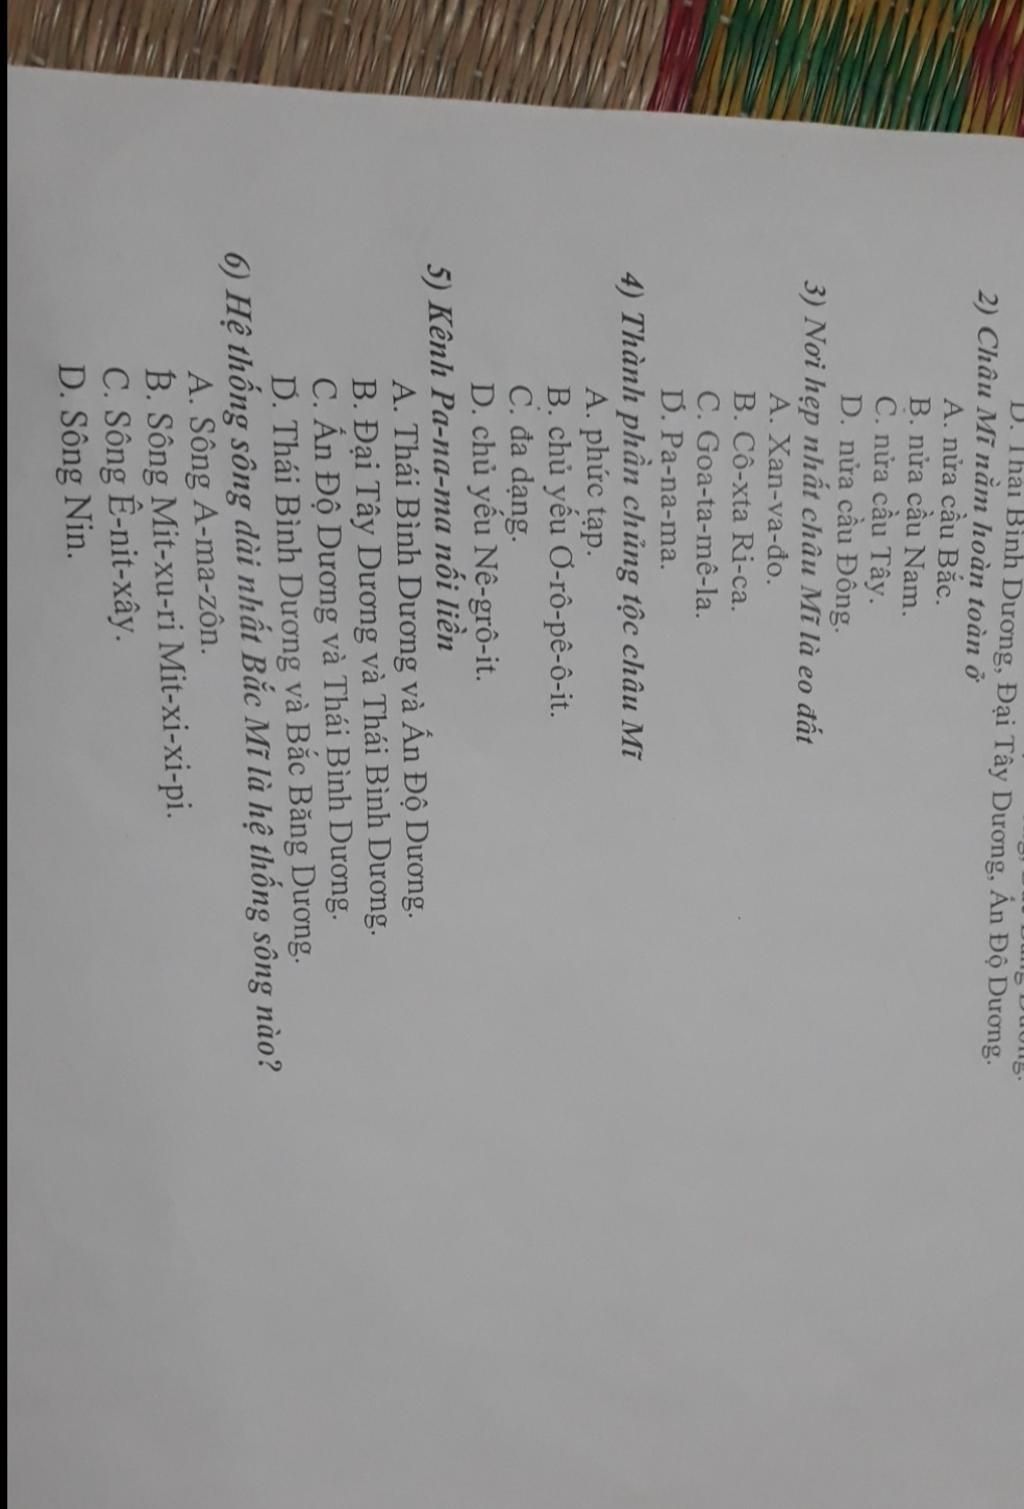 D. Thái Bình Dương, Đại Tây Dương, Ấn Độ Dương.
2) Châu Mĩ nằm hoàn toàn ở
A. nửa cầu Bắc.
B. nửa cầu Nam.
C. nửa cầu Tây.
D. nửa cầu Đông.
3) Nơi hẹp nhất châu Mĩ là eo đất
A. Xan-va-đo.
B. Cô-xta Ri-ca.
C. Goa-ta-mê-la.
D. Pa-na-ma.
4) Thành phần chủng tộc châu Mĩ
A. phức tạp.
B. chủ yếu Ơ-rô-pê-ô-it.
C. đa dạng.
D. chủ yếu Nê-grô-it.
5) Kênh Pa-na-ma nối liền
A. Thái Bình Dương và Ấn Độ Dương.
B. Đại Tây Dương và Thái Bình Dương.
C. Ấn Độ Dương và Thái Bình Dương.
D. Thái Bình Dương và Bắc Băng Dương.
6) Hệ thống sông dài nhất Bắc Mĩ là hệ thống sông nào?
A. Sông A-ma-zôn.
B. Sông Mit-xu-ri Mit-xi-xi-pi.
C. Sông Ê-nit-xây.
D. Sông Nin.